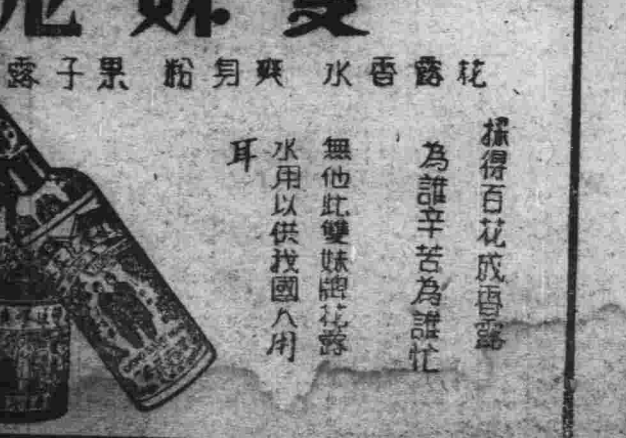 雙妹
花露香水 爽身粉 果子露
採得百花成香露
為誰辛苦為誰忙
無他此雙妹牌花露
水用以供我國人用
耳